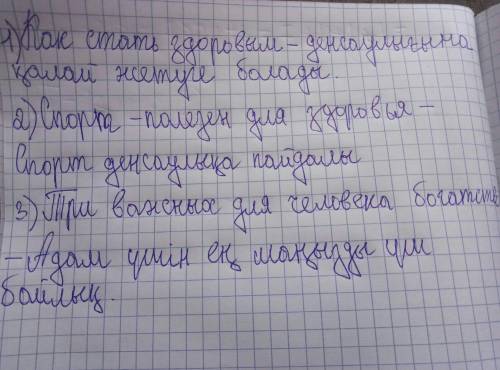 1) Как стать здоровым - денсаулығына
қалай жетуге болады.
2) Спорка - полезен для здоровья -
Спорт денсаулыққа пайдалы
3) Три важных для человека богатств
- Адам үшін ең маңызды үш
байлық.